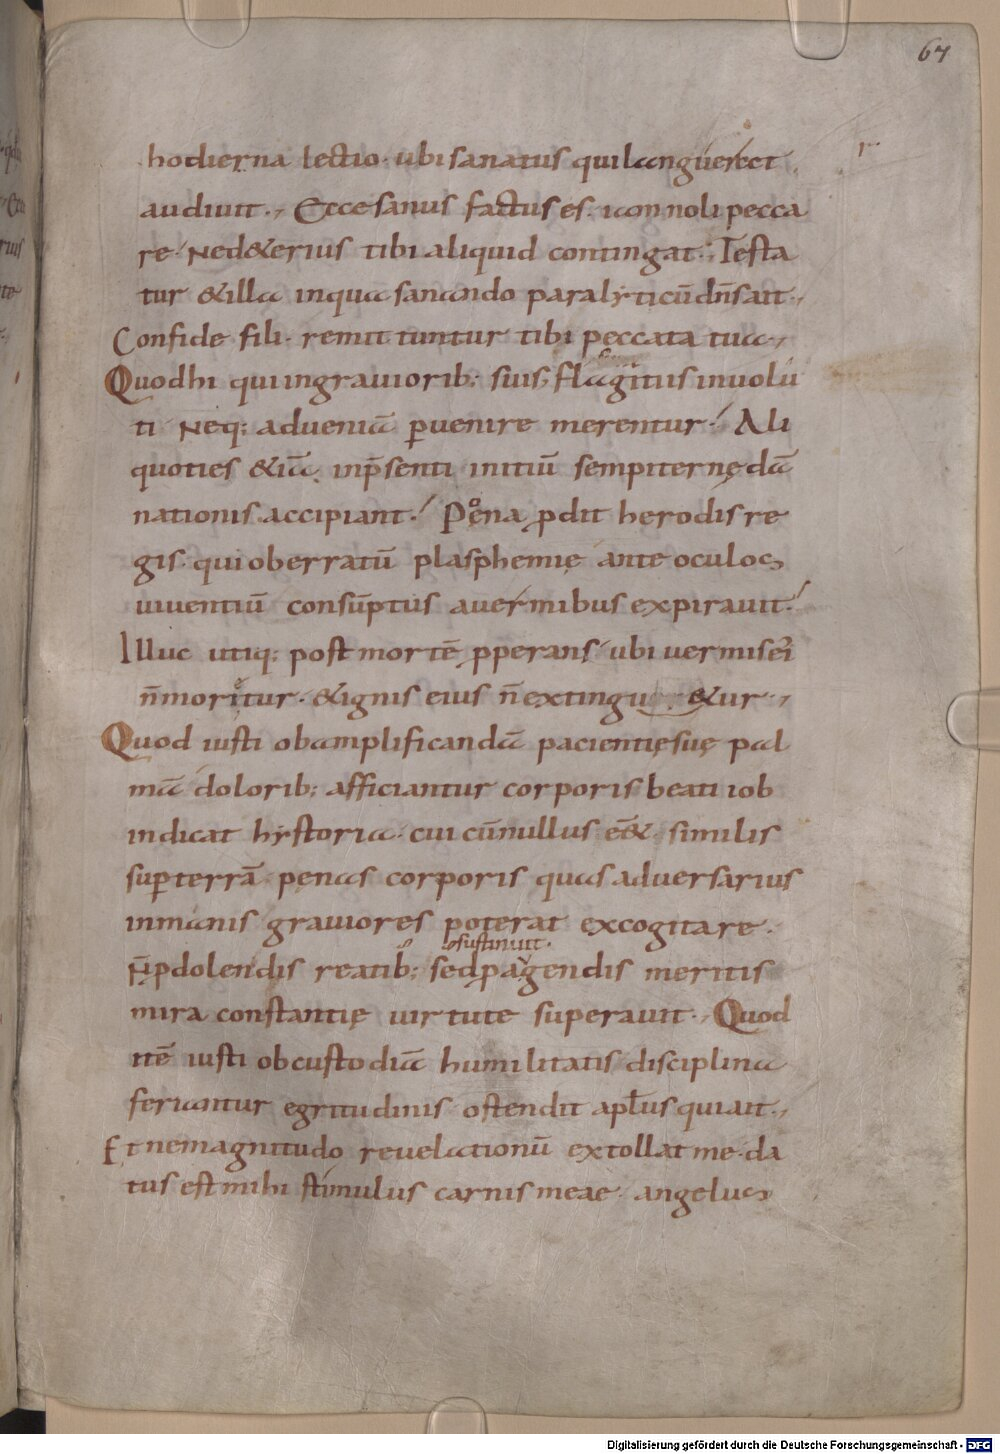 67
r
hodierna lectio· ubi sanatus qui languerat
audiuit·, Ecce sanus factus es· iam noli pecca
re· Ned&erius tibi aliquid contingat·; Testa
tur &illa inqua sanando paralyticū dn̄s ait·,
Confide fili· remittuntur tibi peccata tua·,
Quod hi qui ingrauiorib; suis, flagitiis inuolu
ti Neq; adueniā ꝑuenire merentur·! Ali
quoties &iā inp̄senti initiū sempiternę dā
nationis accipiant·! Pęna ꝓdit herodis re
gis· qui oberratū plasphemię ante oculos
uiuentiū consūptus auermibus expirauit·!
Illuc utiq; post mortē ꝓperans· ubi uermis eoꝝ
n̄ moritur· &ignis eius n̄ extingu &ur·,
Quod iusti obamplificandā pacientię suę pal
mā dolorib; afficiantur corporis beati iob
indicat hystoria· cui cū nullus eē& similis
suꝑ terrā pęnas corporis quas aduersarius
inmanis grauiores poterat excogitare·
sustinuit·
N̄ ꝓdolendis reatib; sed ꝓagendis meritis
mira constantię uirtute superauit·, Quod
itē iusti obcustodiā humilitatis disciplina
feriantur egritudinis ostendit apl̄us quia ait·,
Et nemagnitudo reuelationū extollat me· da
tus est mihi stimulus carnis meae· angelus
Digitalisierung gefördert durch die Deutsche Forschungsgemeinschaft - DFG